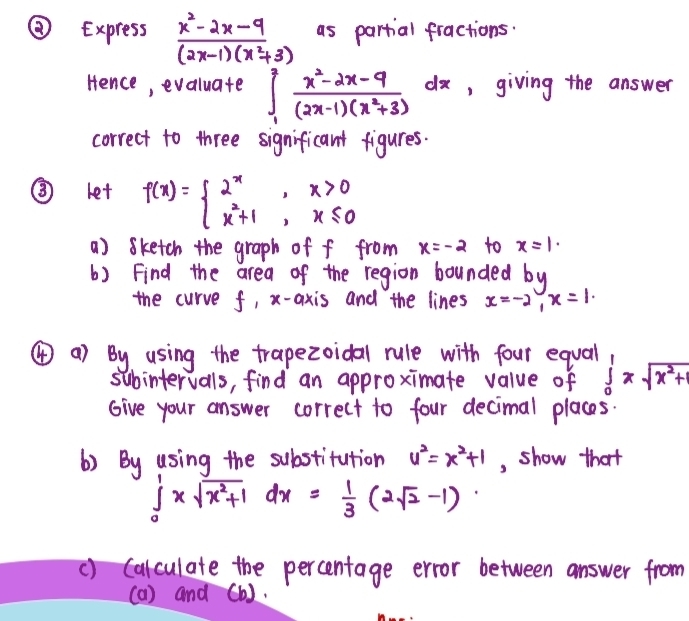 ② Express x²-2x-9 / (2x-1)(x²+3) as partial fractions.
Hence, evaluate ∫₁³ x²-2x-9 / (2x-1)(x²+3) dx, giving the answer
correct to three significant figures.
③ Let f(x) = { 2ˣ , x>0
x²+1 , x≤0
a) Sketch the graph of f from x=-2 to x=1.
b) Find the area of the region bounded by
the curve f, x-axis and the lines x=-2, x=1.
④ a) By using the trapezoidal rule with four equal
subintervals, find an approximate value of ∫₀¹ x √x²+1
Give your answer correct to four decimal places.
b) By using the substitution u²=x²+1, show that
∫₀¹ x √x²+1 dx = 1/3 (2√2 -1).
c) Calculate the percentage error between answer from
(a) and (b).